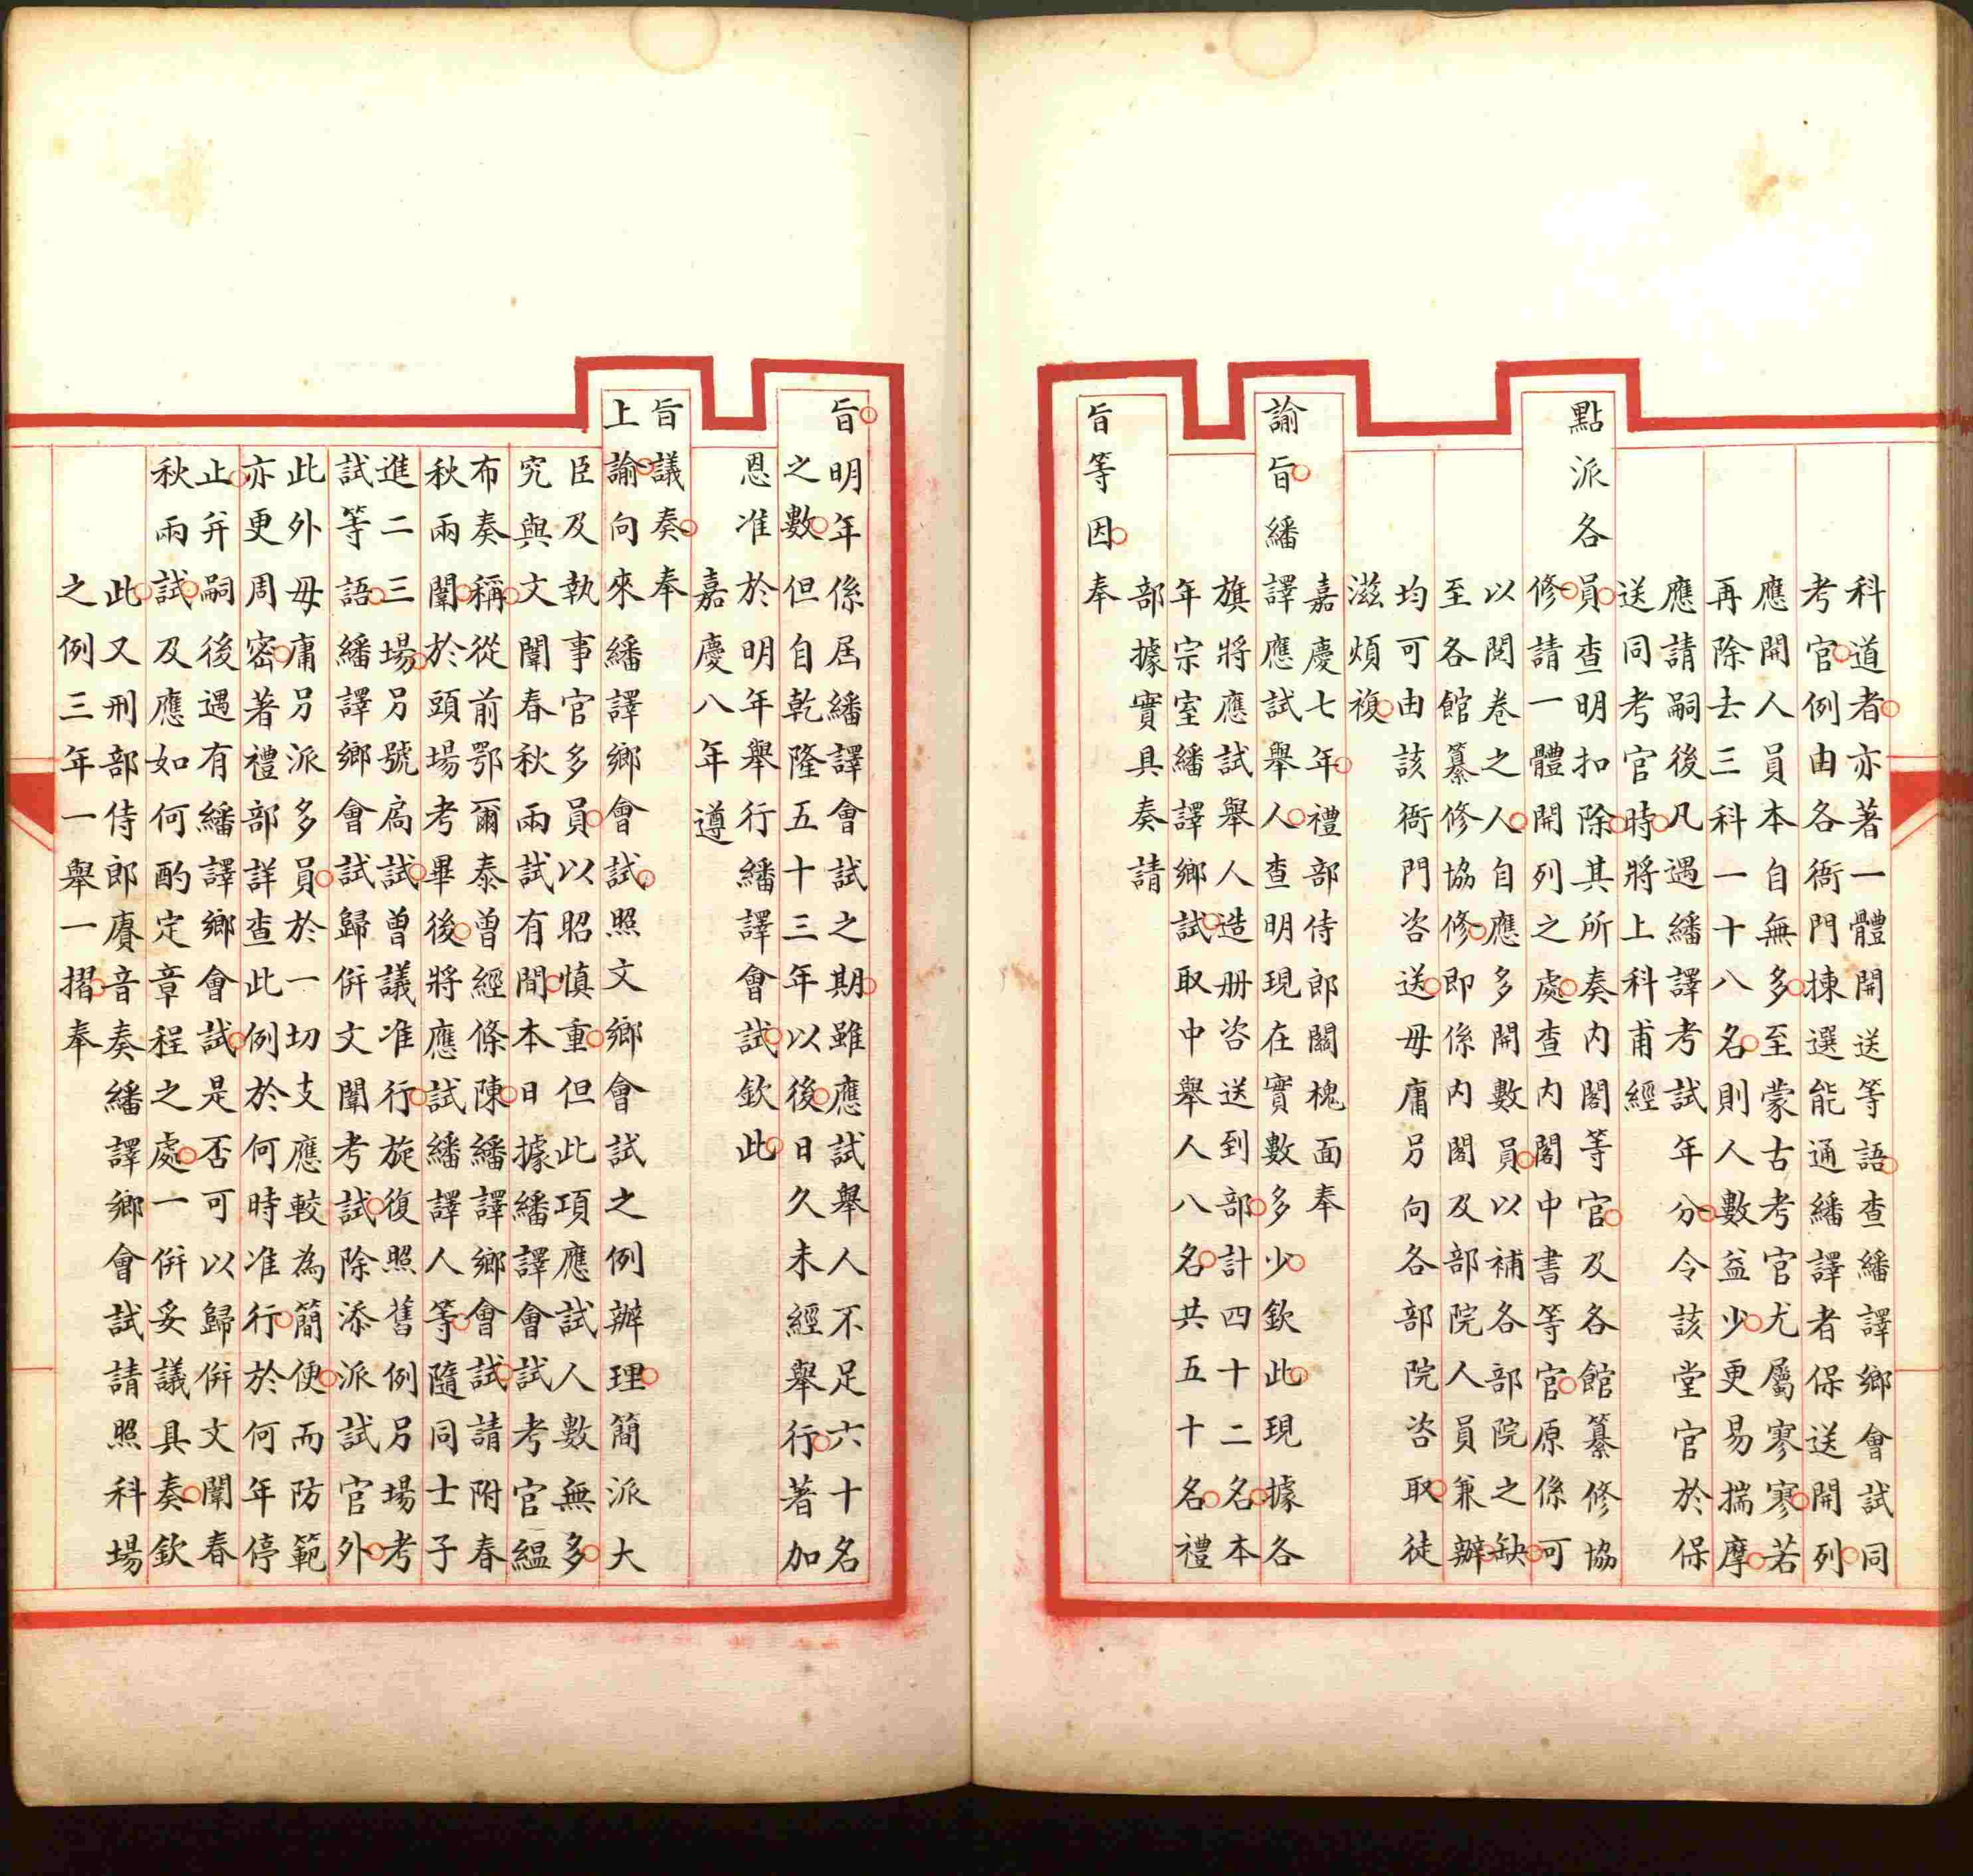 科道者亦著一體開送等語查繙譯鄉會試同
考官例由各衙門揀選能通繙譯者保送開列
應開人員本自無多至蒙古考官尤屬寥寥若
再除去三科一十八名則人數益少更易揣摩
應請嗣後凡遇繙譯考試年分令該堂官於保
送同考官時將上科甫經
點派各員查明扣除其所奏內閣等官及各館纂修協
修請一體開列之處查內閣中書等官原係可
以閱卷之人自應多開數員以補各部院之缺
至各館纂修協修即係內閣及部院人員兼辦
均可由該衙門咨送毋庸另向各部院咨取徒
滋煩複
嘉慶七年禮部侍郎關槐面奉
諭旨繙譯應試舉人查明現在實數多少欽此現據各
旗將應試舉人造册咨送到部計四十二名本
年宗室繙譯鄉試取中舉人八名共五十名禮
部據實具奏請
旨等因奉
旨明年係屆繙譯會試之期雖應試舉人不足六十名
之數但自乾隆五十三年以後日久未經舉行著加
恩准於明年舉行繙譯會試欽此
嘉慶八年遵
旨議奏奉
上諭向來繙譯鄉會試照文鄉會試之例辦理簡派大
臣及執事官多員以昭慎重但此項應試人數無多
究與文闈春秋兩試有間本日據繙譯會試考官縕
布奏稱從前鄂爾泰曾經條陳繙譯鄉會試請附春
秋兩闈於頭場考畢後將應試繙譯人等隨同士子
進二三場另號扃試曾議准行旋復照舊例另場考
試等語繙譯鄉會試歸併文闈考試除添派試官外
此外毋庸另派多員於一切支應較為簡便而防範
亦更周密著禮部詳查此例於何時准行於何年停
止并嗣後遇有繙譯鄉會試是否可以歸併文闈春
秋兩試及應如何酌定章程之處一併妥議具奏欽
此又刑部侍郎賡音奏繙譯鄉會試請照科場
之例三年一舉一摺奉